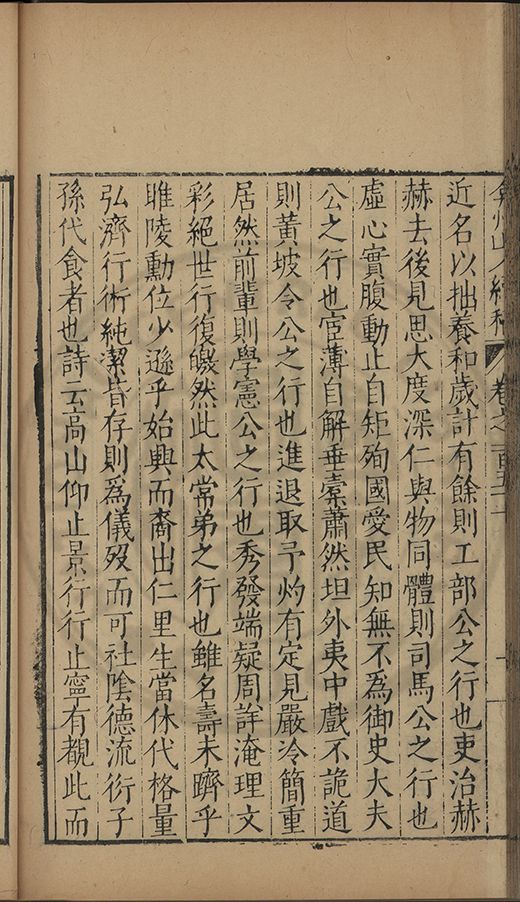 弇州山人續稿 卷之一百五十
近名以拙養和歲計有餘則工部公之行也吏治赫
赫去後見思大度深仁與物同體則司馬公之行也
虛心實腹動止自矩殉國愛民知無不爲御史大夫
公之行也宦薄自解垂橐蕭然坦外夷中戲不詭道
則黃坡令公之行也進退取予灼有定見嚴冷簡重
居然前輩則學憲公之行也秀發端凝周詳淹理文
彩絕世行復皦然此太常弟之行也雖名壽未躋乎
睢陵勳位少遜乎始興而裔出仁里生當休代格量
弘濟行術純潔皆存則爲儀歿而可社陰德流衍子
孫代食者也詩云高山仰止景行行止寧有覩此而